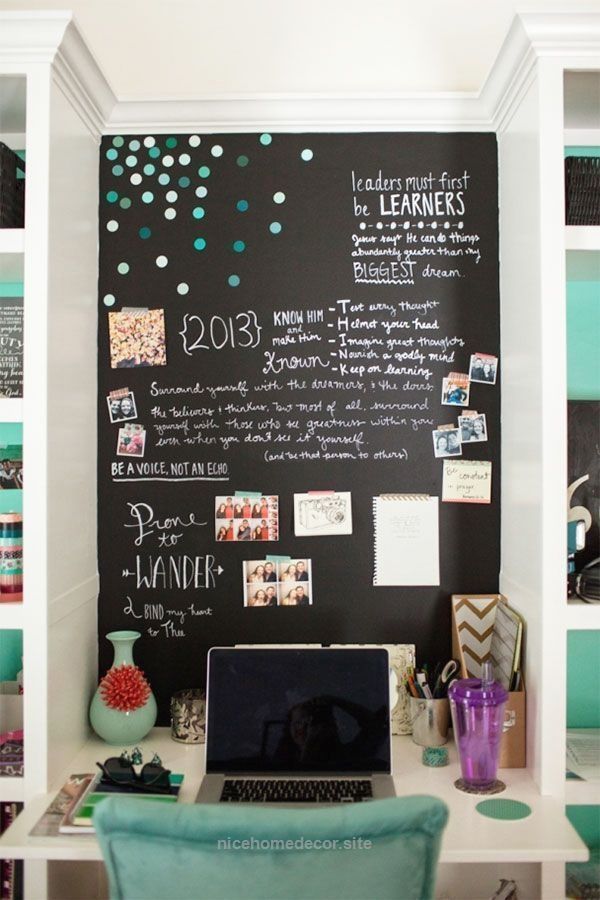 leaders must first
be LEARNERS
Jesus says He can do things
abundantly greater than my
BIGGEST dream.
{2013}
KNOW HIM
and
make Him
Known
- Test every thought
- Helmet your head
- Imagine great thoughts
- Nourish a godly mind
- Keep on learning
Surround yourself with the dreamers, & the doers,
the believers & thinkers, but most of all, surround
yourself with those who see greatness within you
even when you don't see it yourself.
(and be that person to others)
BE A VOICE, NOT AN ECHO.
Be constant
in prayer
Prone
to
WANDER
BIND my heart
to Thee
nicehomedecor.site